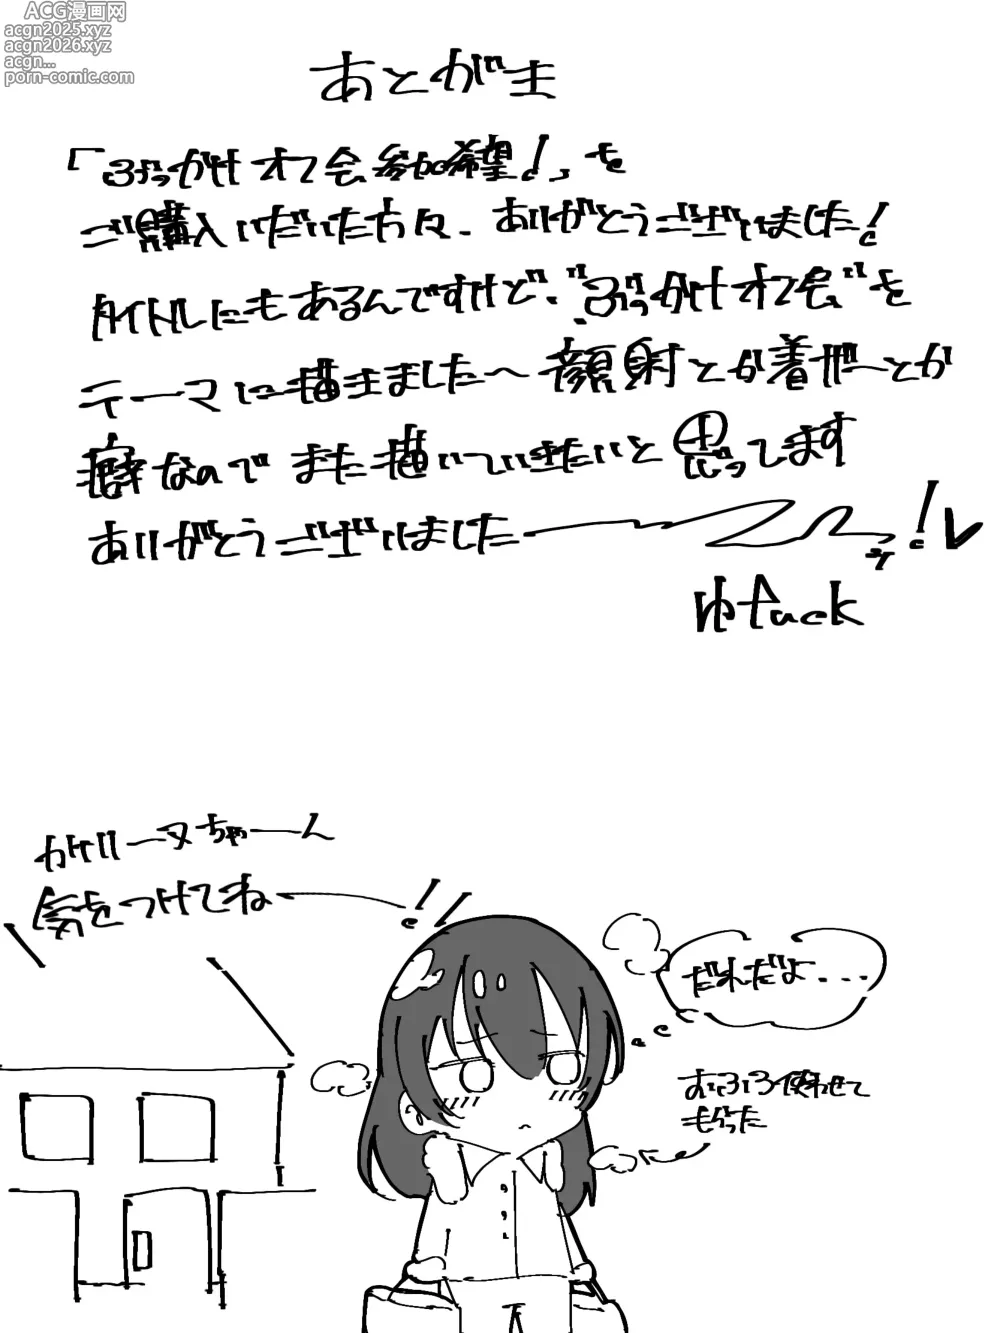 ACG漫画网
acgn2025.xyz
acgn2026.xyz
acgn...
porn-comic.com
あとがき
「ぶっかけオフ会参加希望！」を
ご購入いただいた方々、ありがとうございました！
タイトルにもあるんですけど、"ぶっかけオフ会"を
テーマに描きました〜顔射とか着ザーとか
癖なのでまた描いていきたいと思ってます
ありがとうございました――！！
ゆtuck
ガリーヌちゃーん
気をつけてね――！！
だれだよ...
おふろ使わせて
もらった